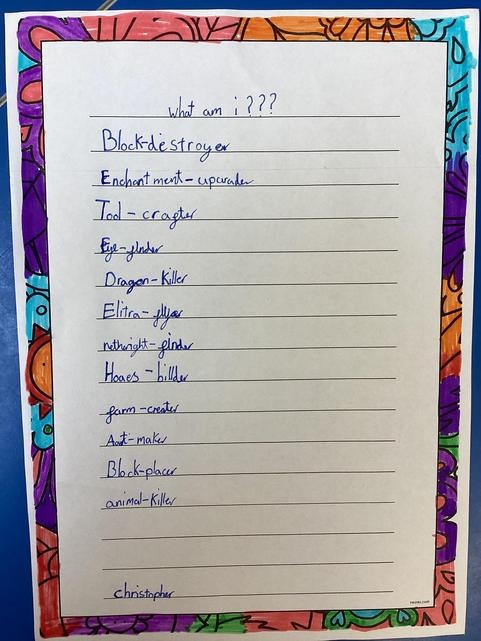 what am i???
Block-destroyer
Enchantment-upgrader
Tool-crafter
Eye-finder
Dragon-Killer
Elitra-flyer
netheright-finder
Hoaes-billder
farm-creater
Aart-maker
Block-placer
animal-Killer
christopher
twinkl.com